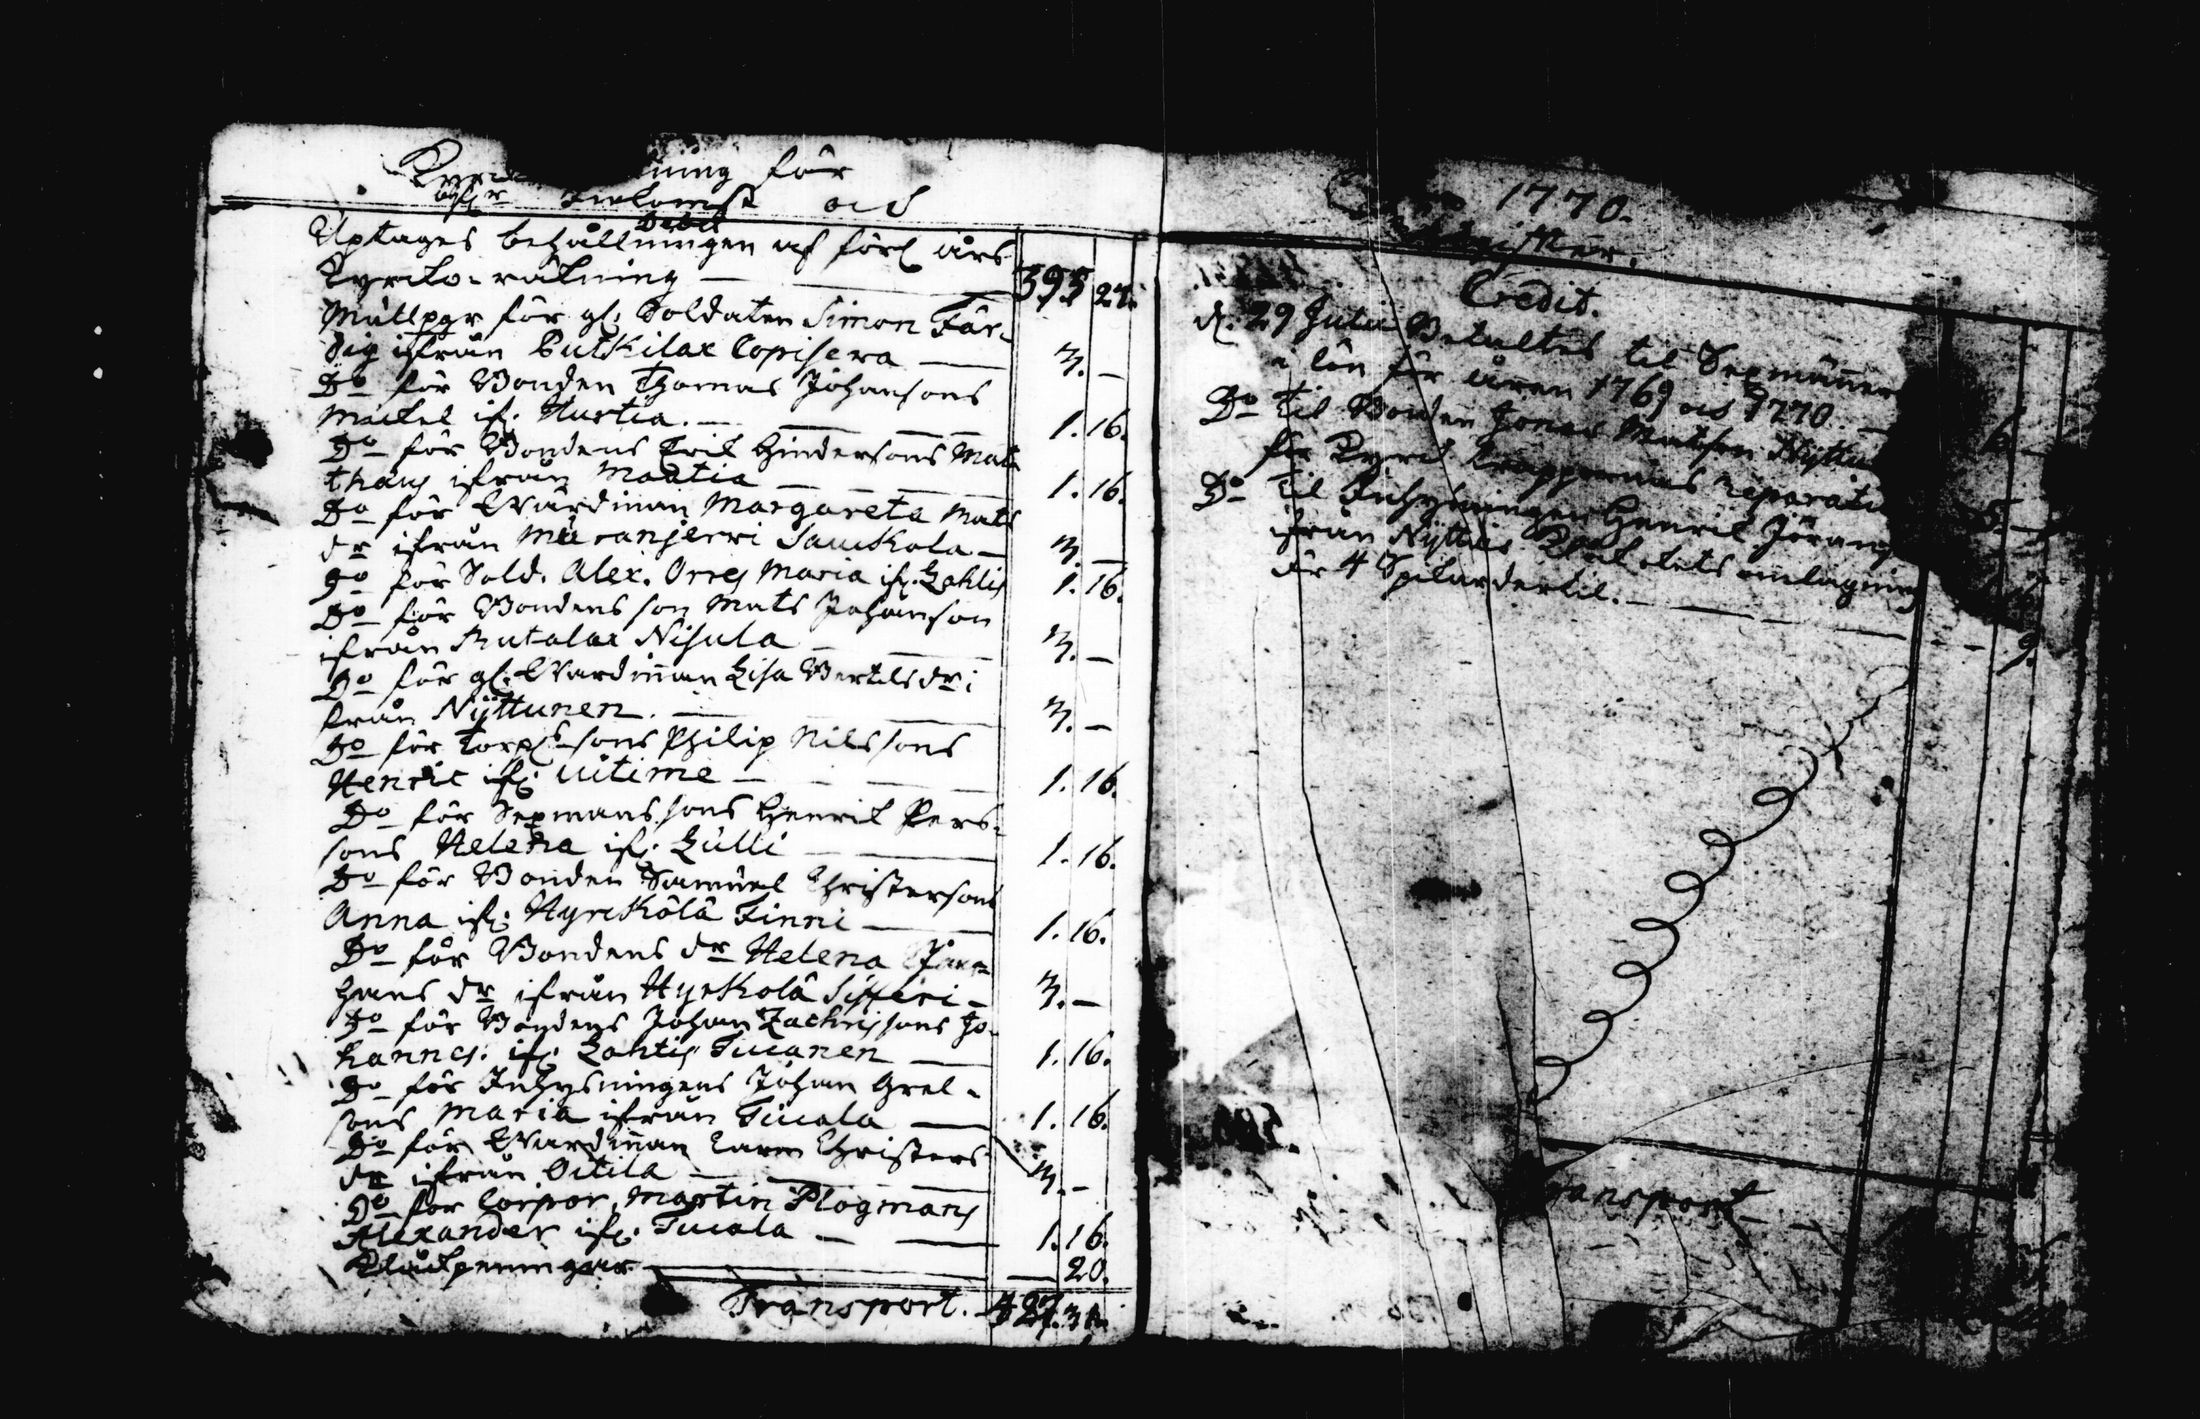 ning för
Inkomst och
Debet
Uptages behållningen af förl. års
Kyrcko-räkning — 395 27.
Mullpgr för gl. Soldaten Simon Fär-
dig ifrån Putkilax Copisewa — 3. —
Do för Bonden Thomas Johansons
Mickel ifr. Hurtia. — 1. 16.
Do för Bondens Erik Hindersons Mat-
thans ifrån Maatia — 1. 16.
Do för Wärdinnan Margareta Mats
dr ifrån Muranjerwi Sauckola — 3. —
Do för Sold. Alex. Orres Maria ifr. Lahtis 1. 16.
Do för Bondens son Mats Johanson
ifrån Rutalax Nisula — 3. —
Do för gl. Wärdinnan Lisa Bertilsdr i
från Nyttunen. — 3. —
Do för Torps sons Philip Nilssons
Henric ifr. Uitime — 1. 16.
Do för Sexmans sons Henrik Pers-
sons Helena ifr. Lulli — 1. 16.
Do för Bonden Samuel Christersons
Anna ifr. Hyrckölä Finni — 1. 16.
Do för Bondens dr Helena
hans dr ifrån Hyrkölä Sifferi — 3. —
Do för Bondens Johan Zachrissons Jo-
hannes. ifr. Lahtis Tucanen — 1. 16.
Do för Inhysningens Johan Grel-
sons Maria ifrån Tiucala — 1. 16.
Do för Wärdinnan Karin Christers
dr ifrån Oitila — 3. —
Do för Corpor. Martin Plogmans
Alexander ifr. Tucala — 1. 16.
Klåckpenningar — 20.
Transport. 427. 31.
1770.
Credit.
d. 29 Julii Betaltes til Sexmännen
i lön för åren 1769 och 1770. — 6. —
Do til Bonden Jonas Matsson Nyttu
för Kyrck trappornas reparati 5. —
Do til Inhysningen Henrik Jörans
ifrån Nyttus omlagning
för 4 Spikar dertil. — 9.
Transport —